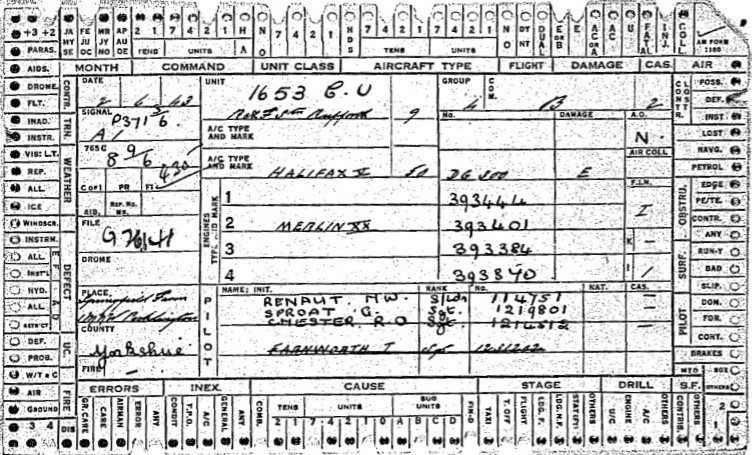 +3 +2 JA MY SE FE JU OC MR JY NO AP AU DE 2 1 7 4 2 1 H NO 7 4 2 1 HDS 7 4 2 1 7 4 2 1 NO DY NT DUAL E OR B E AC OR A AC C U FATAL INJ. COLL AIR FORM 1180
TENS UNITS A TENS UNITS
PARAS. MONTH COMMAND UNIT CLASS AIRCRAFT TYPE FLIGHT DAMAGE CAS. AIR
AIDS. CONTR. DATE 2 6 43 UNIT 1653 C.U GROUP 4 COM. B 2 CONTR. CONST POSS.
DROME. DEF.
FLT. SIGNAL P371 3/6 9 No. DAMAGE A.O. INST
INAD. TRN. A1 A/C TYPE AND MARK N. LOST
INSTR. 765C 8 9/6 430 AIR COLL NAVG.
VIS: L.T. WEATHER A/C TYPE AND MARK HALIFAX V DG 300 E PETROL
REP. C OF I PR FI F.I.N. EDGE
ALL AIB. REP. No. ENGINES TYPE AND MARK 1 393444 I OBSTRU. PE/TE.
ICE FILE 2 MERLIN XX 393401 CONTR.
WINDSCR. 3 393384 K ANY
INSTRM. DEFECT DROME 4 393870 I RUN-Y
ALL SURF. BAD
INST'L PLACE, Springfield Farm PILOT NAME; INIT. RANK No. NAT. CAS. SLIP.
HYD. RENAUT. M.W. S/Ldr 114751 DON.
ALL COUNTY SPROAT G. Sgt. 1219801 PILOT FOR.
RETR'CT CHESTER R.O Sgt. 1214512 CONT.
DEF. UC. Yorkshire FARNWORTH T Sgt BRAKES
PROB. FIRE —
W/T & C ERRORS INEX. CAUSE STAGE DRILL S.F. MTO BOX
AIR FIRE GR. CARE CARE AIRMAN ERROR ANY CONDIT T.P.O. A/C GENERAL ANY COMB. TENS UNITS SUB UNITS FIN-D TAXI T.OFF FLIGHT LDG. F. LDG. N.F. OTHERS U/C ENGINE A/C OTHERS CONTRIB. OTHERS OTHERS 2
GROUND 2 1 7 4 2 1 0 A B C D 1
3 4 DIS